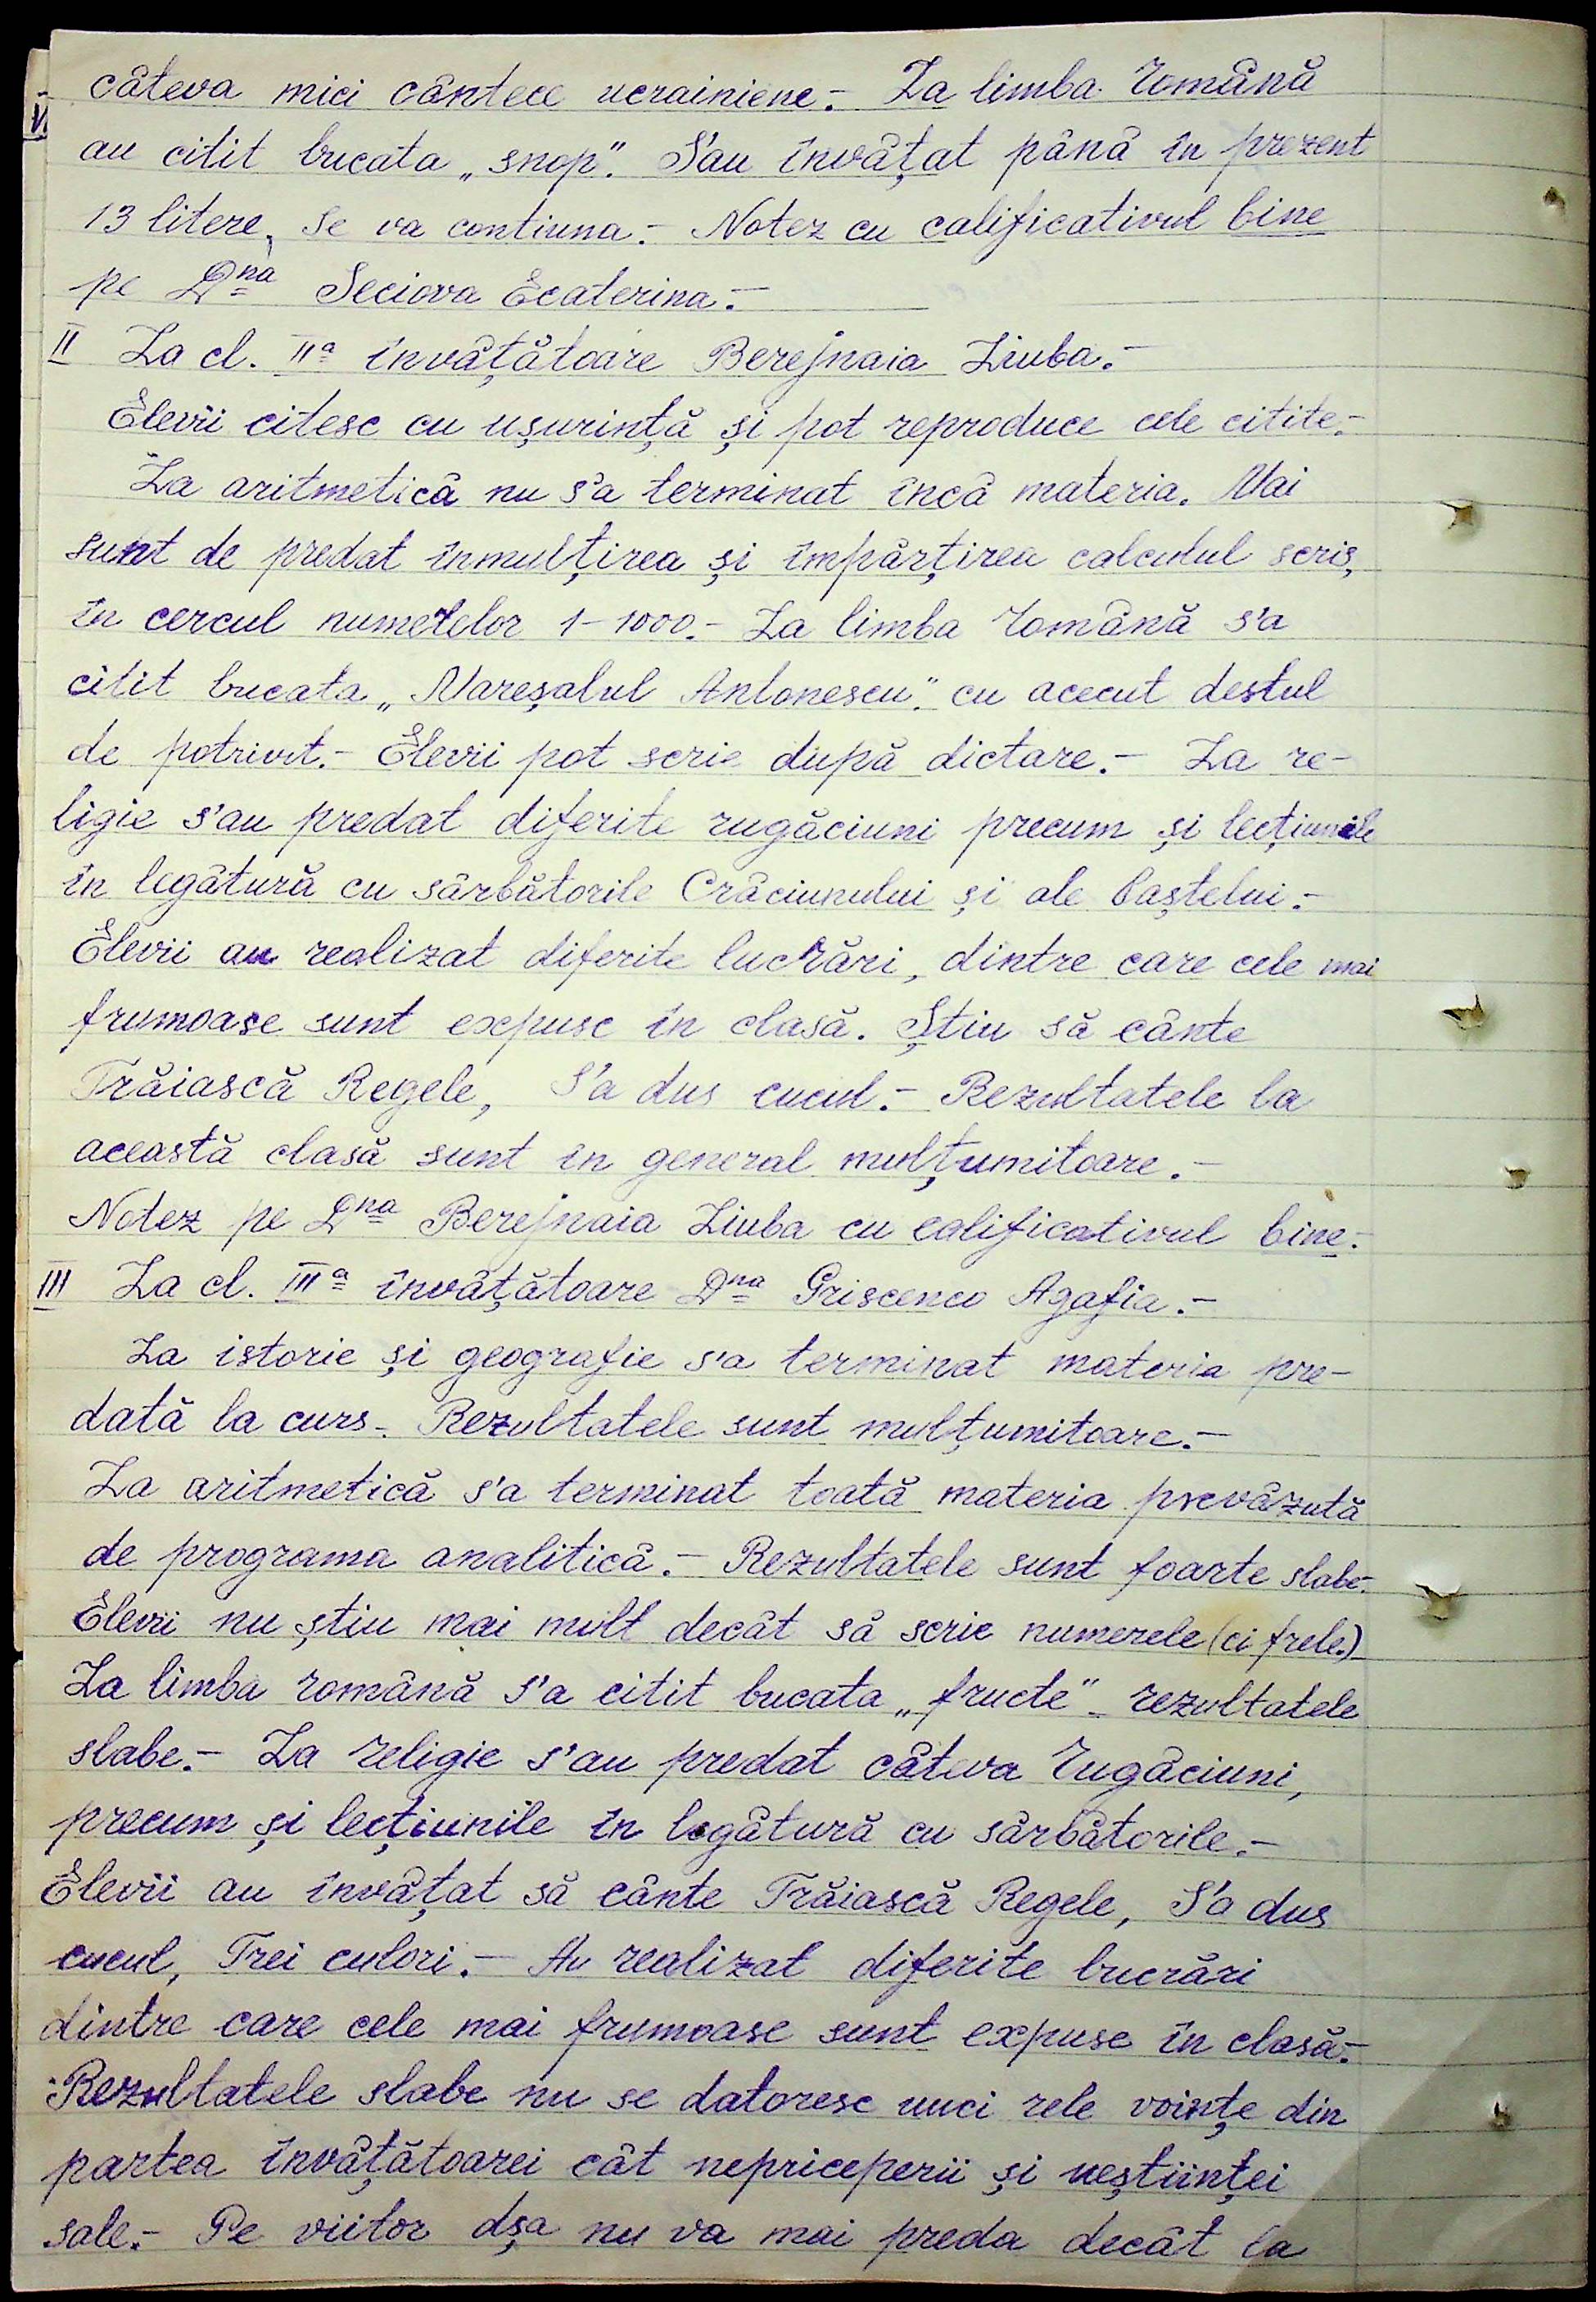 câteva mici cântece ucrainiene.- La limba română
au citit bucata „snop". S'au învățat până în prezent
13 litere, se va contiuna.- Notez cu calificativul bine
pe Dna Seciova Ecaterina.-
II La cl. IIa învățătoare Berejnaia Liuba.-
Elevii citesc cu ușurință și pot reproduce cele citite.-
La aritmetică nu s'a terminat încă materia. Mai
sunt de predat înmulțirea și împărțirea calculul scris,
în cercul numerelor 1-1000.- La limba română s'a
citit bucata „Mareșalul Antonescu". cu acecut destul
de potrivit.- Elevii pot scrie după dictare.- La re-
ligie s'au predat diferite rugăciuni precum și lecțiunile
în legătură cu sărbătorile Crăciunului și ale Paștelui.-
Elevii au realizat diferite lucrări, dintre care cele mai
frumoase sunt expuse în clasă. Știu să cânte
Trăiască Regele, S'a dus cucul.- Rezultatele la
această clasă sunt în general mulțumitoare.-
Notez pe Dna Berejnaia Liuba cu calificativul bine.-
III La cl. IIIa învățătoare Dna Griscenco Agafia.-
La istorie și geografie s'a terminat materia pre-
dată la curs.- Rezultatele sunt mulțumitoare.-
La aritmetică s'a terminat toată materia prevăzută
de programa analitică.- Rezultatele sunt foarte slabe.-
Elevii nu știu mai mult decât să scrie numerele (cifrele.)
La limba română s'a citit bucata „fructe" - rezultatele
slabe.- La religie s'au predat câteva rugăciuni,
precum și lecțiunile în legătură cu sărbătorile.-
Elevii au învățat să cânte Trăiască Regele, S'a dus
cucul, Trei culori.- Au realizat diferite lucrări
dintre care cele mai frumoase sunt expuse în clasă.-
Rezultatele slabe nu se datoresc unei rele voințe din
partea învățătoarei cât nepriceperii și neștiinței
sale.- Pe viitor dșa nu va mai preda decât la